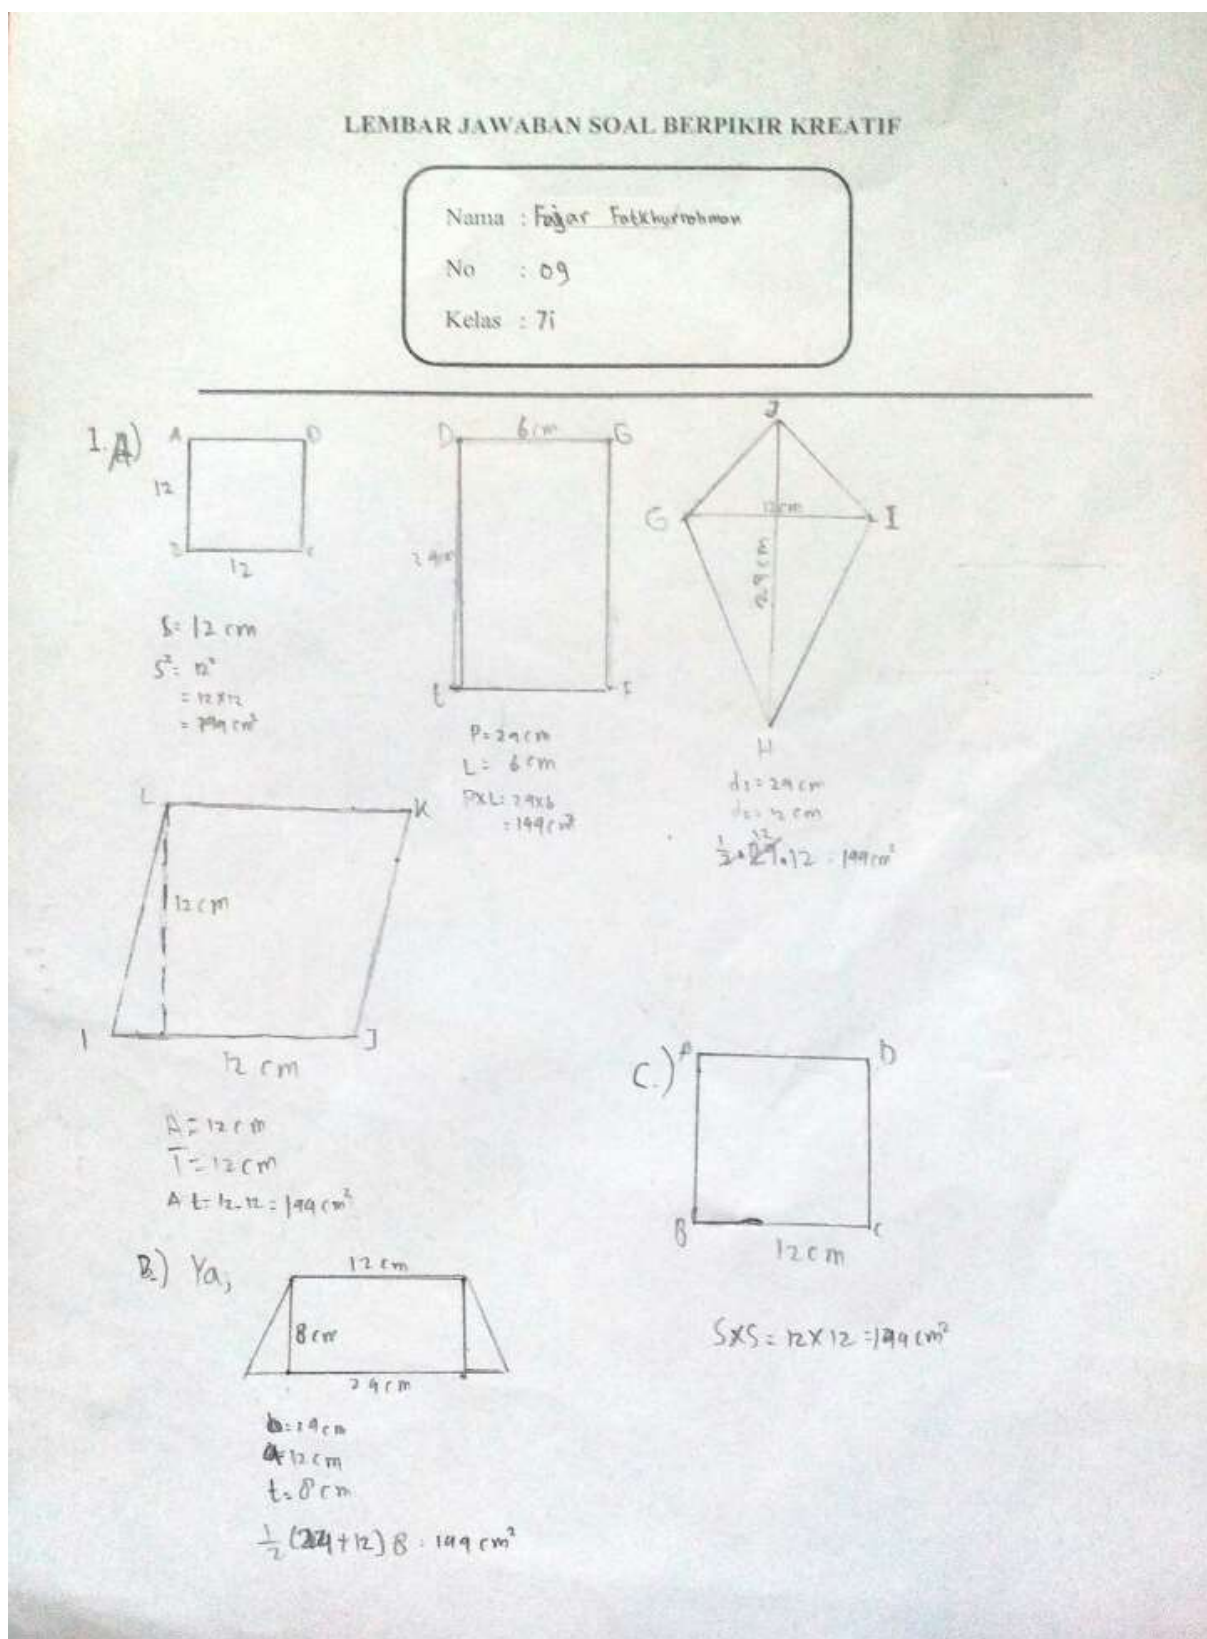 LEMBAR JAWABAN SOAL BERPIKIR KREATIF
Nama : Fajar Fatkhurrohman
No : 09
Kelas : 7i
1. A)
A D
12
B C
12
S = 12 cm
S² = 12²
= 12 x 12
= 144 cm²
D 6 cm G
24 cm
E F
P = 24 cm
L = 6 cm
P x L = 24 x 6
= 144 cm²
J
G 12 cm I
24 cm
H
d₁ = 24 cm
d₂ = 12 cm
12
½ . 24 . 12 = 144 cm²
L K
12 cm
I J
12 cm
A = 12 cm
T = 12 cm
A t = 12 . 12 = 144 cm²
B.) Ya,
12 cm
8 cm
24 cm
b = 24 cm
a = 12 cm
t = 8 cm
½ (24 + 12) 8 = 144 cm²
C.)
A D
B C
12 cm
S x S = 12 x 12 = 144 cm²